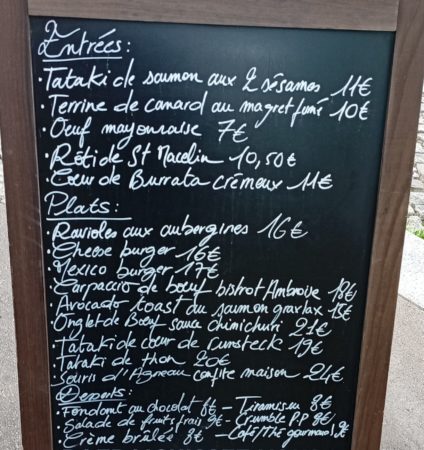 Entrées:
· Tataki de saumon aux 2 sésames 11€
· Terrine de canard au magret fumé 10€
· Oeuf mayonnaise 7€
· Rôti de St Marcelin 10,50€
· Coeur de Burrata crémeux 11€
Plats:
· Ravioles aux aubergines 16€
· Cheese burger 16€
· Mexico burger 17€
· Carpaccio de boeuf bistrot Ambroise 18€
· Avocado toast du saumon gravlax 15€
· Onglet de Boeuf sauce chimichuri 21€
· Tataki de coeur de rumsteck 19€
· Tataki de thon 20€
· Souris d'Agneau confite maison 24€
Desserts:
· Fondant au chocolat 8€ - Tiramissu 8€
· Salade de fruits frais 9€ - Crumble P.P 8€/
· Crème brûlée 8€ - Café/Thé gourmand 9€